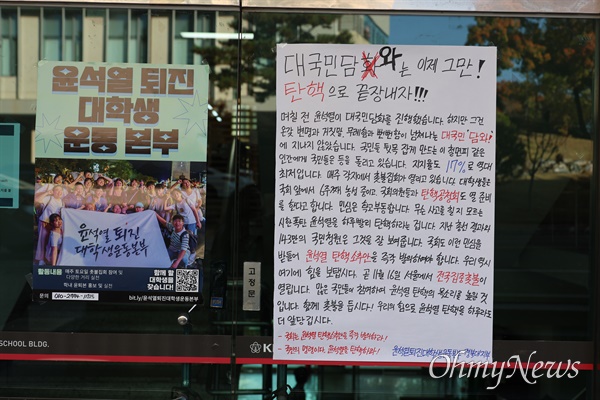 윤석열 퇴진
대학생
운동 본부
윤석열 퇴진
대학생운동본부
활동내용
매주 토요일 촛불집회 참여 및
다양한 거리 실천
학내 윤퇴본 홍보 및 실천
함께 할
대학생을
찾습니다!
문의
bit.ly/윤석열퇴진대학생운동본부
고정문
SCHOOL BLDG.
대국민담화와는 이제 그만!
탄핵으로 끝장내자!!!
며칠 전 윤석열이 대국민담화를 진행했습니다. 하지만 그건
온갖 변명과 거짓말, 무례함과 뻔뻔함이 넘쳐나는 대국민 '담와'
에 지나지 않았습니다. 국민을 뒷목 잡게 만드는 이 철면피 같은
인간에게 국민들은 등을 돌리고 있습니다. 지지율도 17%로 역대
최저입니다. 매주 각자에서 촛불집회가 열리고 있습니다. 대학생들은
국회 앞에서 농성 중이고, 국회의원들과 탄핵공청회도 열 준비
를 한다고 합니다. 민심은 촉고부동합니다. 무슨 사고를 칠 지 모르는
시한폭탄 윤석열을 하루빨리 탄핵하라는 겁니다. 지난 총선 결과와
143만의 국민청원은 그것을 잘 보여줍니다. 국회도 이런 민심을
받들어 윤석열 탄핵소추안을 즉각 발의해야 합니다. 우리 역시
여기에 힘을 보탭시다. 곧 11월 16일 서울에서 전국집중촛불이
열립니다. 많은 국민들이 참여하여 윤석열 탄핵의 목소리를 높일 것
입니다. 함께 촛불을 듭시다! 우리의 힘으로 윤석열 탄핵을 하루라도
더 앞당깁시다.
- 국회는 윤석열 탄핵소추안을 즉각 발의하라!
- 국민의 명령이다, 윤석열을 탄핵하라!
윤석열퇴진대학생운동본부
OhmyNews